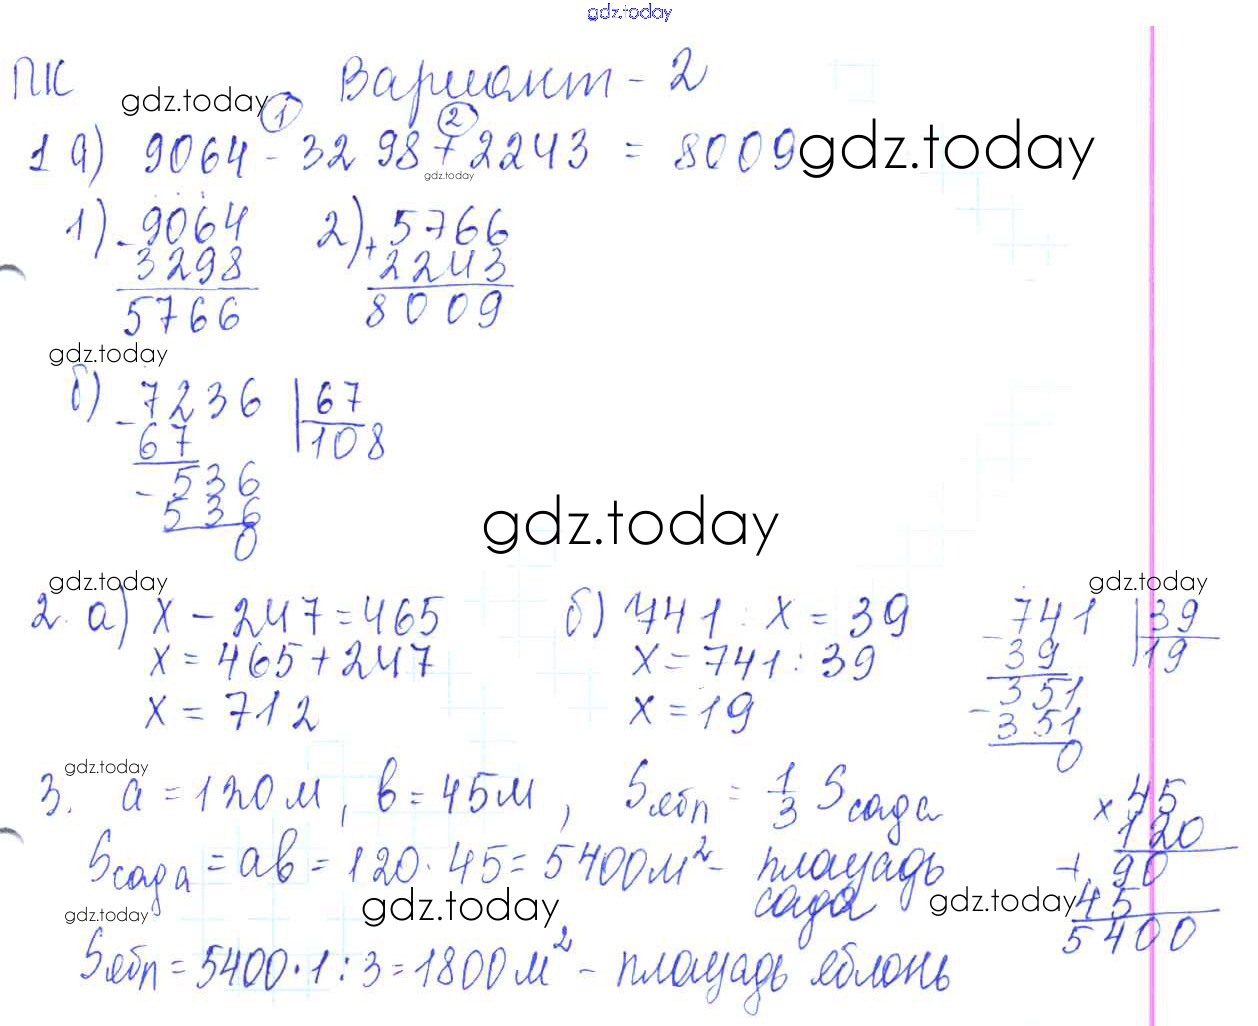 gdz.today
ПК Вариант - 2
gdz.today
1 2
1 а) 9064 - 3298 + 2243 = 8009
gdz.today
gdz.today
1) - 9064 2) + 5766
3298 2243
5766 8009
gdz.today
б) - 7236 | 67
67 108
- 536
536
0
gdz.today
gdz.today gdz.today
2. а) x - 247 = 465 б) 741 : x = 39 - 741 | 39
x = 465 + 247 x = 741 : 39 39 19
x = 712 x = 19 - 351
351
0
gdz.today
3. a = 120 м, b = 45 м, Sябл = 1/3 Sсада × 45
120
Sсада = ab = 120 · 45 = 5400 м² - площадь + 90
сада 45
gdz.today gdz.today gdz.today
5400
Sябл = 5400 · 1 : 3 = 1800 м² - площадь яблонь